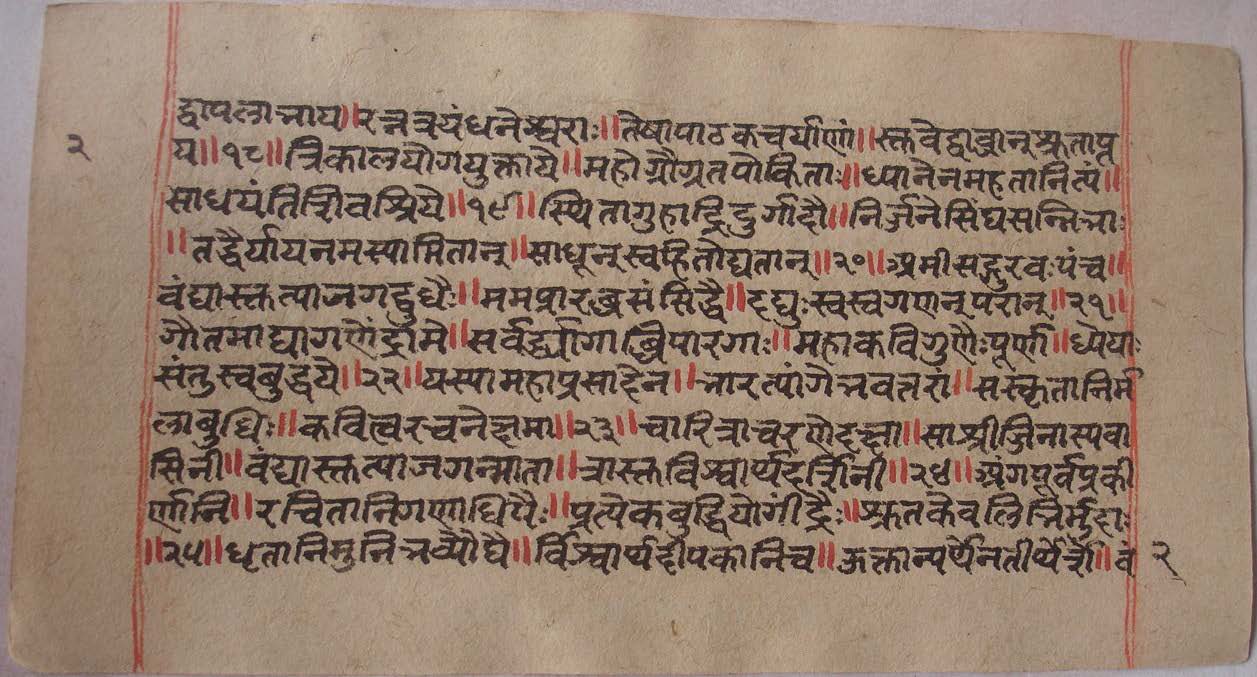 २
द्वापलात्राय॥रत्नत्रयंधनेश्वराः॥तेषापाठकचर्याणां॥स्क्तवैद्वाब्रान्श्रुताप्त
य॥१८॥त्रिकालयोगयुक्तायै॥महोग्रोग्रतपोकिताः॥ध्यानेनमहतानित्यं॥
साधयंतिशिवश्रियै॥१९॥स्थितागुहाद्रिदुर्गादौ॥निर्जनेसिंघसन्निभाः
॥तद्धैर्यायनमस्यामितान्॥साधून्स्वहितोद्यतान्॥२०॥अमीसद्गुरवःपंच॥
वंद्यास्कत्याजगद्बुधैः॥ममप्रारब्धसंसिद्ध्यै॥दद्युःस्वस्वगणान्परान्॥२१॥
गौतमाद्यागणेंद्रामे॥सर्वर्द्ध्यागाब्धिपारगाः॥महाकविगुणैःपूर्णा॥ध्येयाः
संतुस्वबुद्धयै॥२२॥यस्यामहाप्रसादेन॥भारत्यांगेभवत्तरां॥सस्कृतानिर्म
लाबुधिः॥कवित्वरचनेक्षमा॥२३॥चारित्राचरणेदक्षा॥साश्रीजिनास्यवा
सिनी॥वंद्यास्कत्याजगन्माता॥त्रास्कविश्वार्थदर्शिनी॥२४॥अंगपूर्वप्रकी
र्णानि॥रचितानिगणाधिपैः॥प्रत्येकबुद्धियोगींद्रैः॥श्रुतकेवलिभिर्मुदाः
॥२५॥धृतानिमुनिभव्यौघै॥र्विश्वार्थदीपकानिच॥ऊक्तान्यर्थेनतीर्थेशै॥वं
२